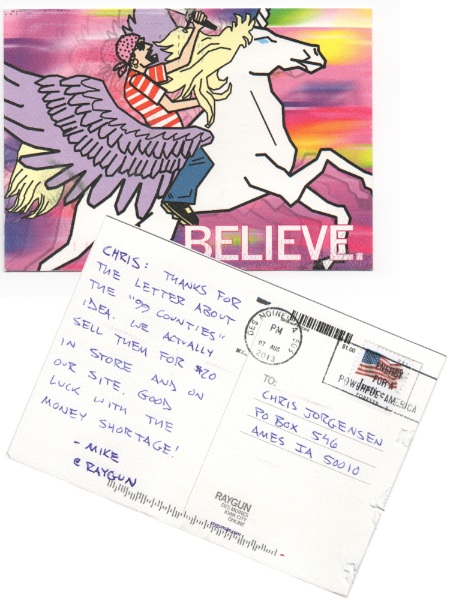 BELIEVE.
CHRIS: THANKS FOR
THE LETTER ABOUT
THE "99 COUNTIES"
IDEA. WE ACTUALLY
SELL THEM FOR $20
IN STORE AND ON
OUR SITE. GOOD
LUCK WITH THE
MONEY SHORTAGE!
- MIKE
@ RAYGUN
DES MOINES IA 503
PM
07 AUG
2013
FOR A
AMERICA
FOREVER
TO:
CHRIS JORGENSEN
PO BOX 546
AMES IA 50010
RAYGUN
DES MOINES
IOWA CITY
ONLINE